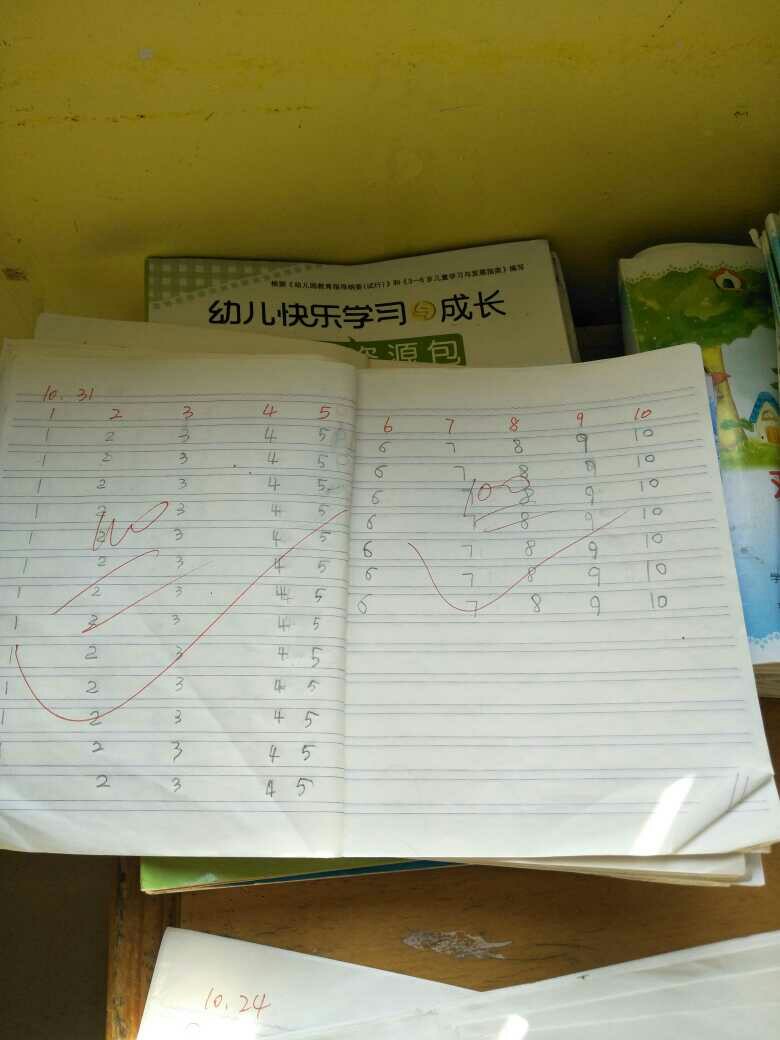 根据《幼儿园教育指导纲要(试行)》和《3-6岁儿童学习与发展指南》编写
幼儿快乐学习与成长
资源包
10.31
1 2 3 4 5
1 2 3 4 5
1 2 3 4 5
1 2 3 4 5
1 2 3 4 5
1 2 3 4 5
1 2 3 4 5
1 2 3 4 5
1 2 3 4 5
1 2 3 4 5
1 2 3 4 5
1 2 3 4 5
1 2 3 4 5
2 3 4 5
100
6 7 8 9 10
6 7 8 9 10
6 7 8 9 10
6 7 8 9 10
6 7 8 9 10
6 7 8 9 10
6 7 8 9 10
6 7 8 9 10
100
10.24